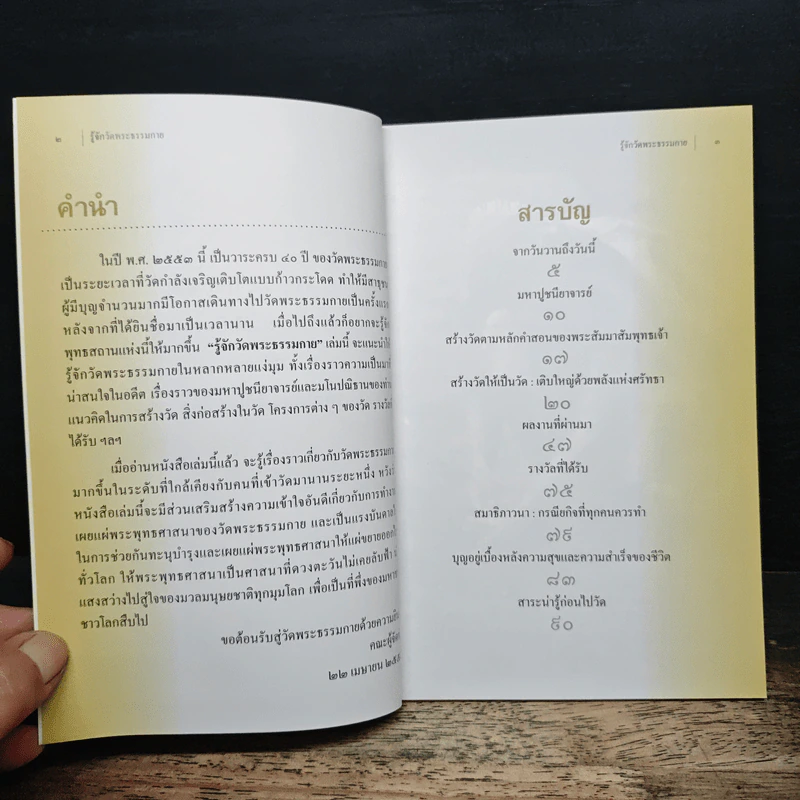 ๒ รู้จักวัดพระธรรมกาย
คำนำ
ในปี พ.ศ. ๒๕๕๓ นี้ เป็นวาระครบ ๔๐ ปี ของวัดพระธรรมกาย
เป็นระยะเวลาที่วัดกำลังเจริญเติบโตแบบก้าวกระโดด ทำให้มีสาธุชน
ผู้มีบุญจำนวนมากมีโอกาสเดินทางไปวัดพระธรรมกายเป็นครั้งแรก
หลังจากที่ได้ยินชื่อมาเป็นเวลานาน เมื่อไปถึงแล้วก็อยากจะรู้จัก
พุทธสถานแห่งนี้ให้มากขึ้น “รู้จักวัดพระธรรมกาย” เล่มนี้ จะแนะนำให้
รู้จักวัดพระธรรมกายในหลากหลายแง่มุม ทั้งเรื่องราวความเป็นมาที่
น่าสนใจในอดีต เรื่องราวของมหาปูชนียาจารย์และมโนปณิธานของท่าน
แนวคิดในการสร้างวัด สิ่งก่อสร้างในวัด โครงการต่าง ๆ ของวัด รางวัลที่
ได้รับ ฯลฯ
เมื่ออ่านหนังสือเล่มนี้แล้ว จะรู้เรื่องราวเกี่ยวกับวัดพระธรรมกาย
มากขึ้นในระดับที่ใกล้เคียงกับคนที่เข้าวัดมานานระยะหนึ่ง หวังว่า
หนังสือเล่มนี้จะมีส่วนเสริมสร้างความเข้าใจอันดีเกี่ยวกับการทำงาน
เผยแผ่พระพุทธศาสนาของวัดพระธรรมกาย และเป็นแรงบันดาลใจ
ในการช่วยกันทะนุบำรุงและเผยแผ่พระพุทธศาสนาให้แผ่ขยายออกไป
ทั่วโลก ให้พระพุทธศาสนาเป็นศาสนาที่ดวงตะวันไม่เคยลับฟ้า
แสงสว่างไปสู่ใจของมวลมนุษยชาติทุกมุมโลก เพื่อเป็นที่พึ่งของมหาชน
ชาวโลกสืบไป
ขอต้อนรับสู่วัดพระธรรมกายด้วยความยินดี
คณะผู้จัดทำ
๒๒ เมษายน
รู้จักวัดพระธรรมกาย ๓
สารบัญ
จากวันวานถึงวันนี้
๕
มหาปูชนียาจารย์
๑๐
สร้างวัดตามหลักคำสอนของพระสัมมาสัมพุทธเจ้า
๑๗
สร้างวัดให้เป็นวัด : เติบใหญ่ด้วยพลังแห่งศรัทธา
๒๐
ผลงานที่ผ่านมา
๔๗
รางวัลที่ได้รับ
๗๕
สมาธิภาวนา : กรณียกิจที่ทุกคนควรทำ
๗๙
บุญอยู่เบื้องหลังความสุขและความสำเร็จของชีวิต
๘๓
สาระน่ารู้ก่อนไปวัด
๙๐